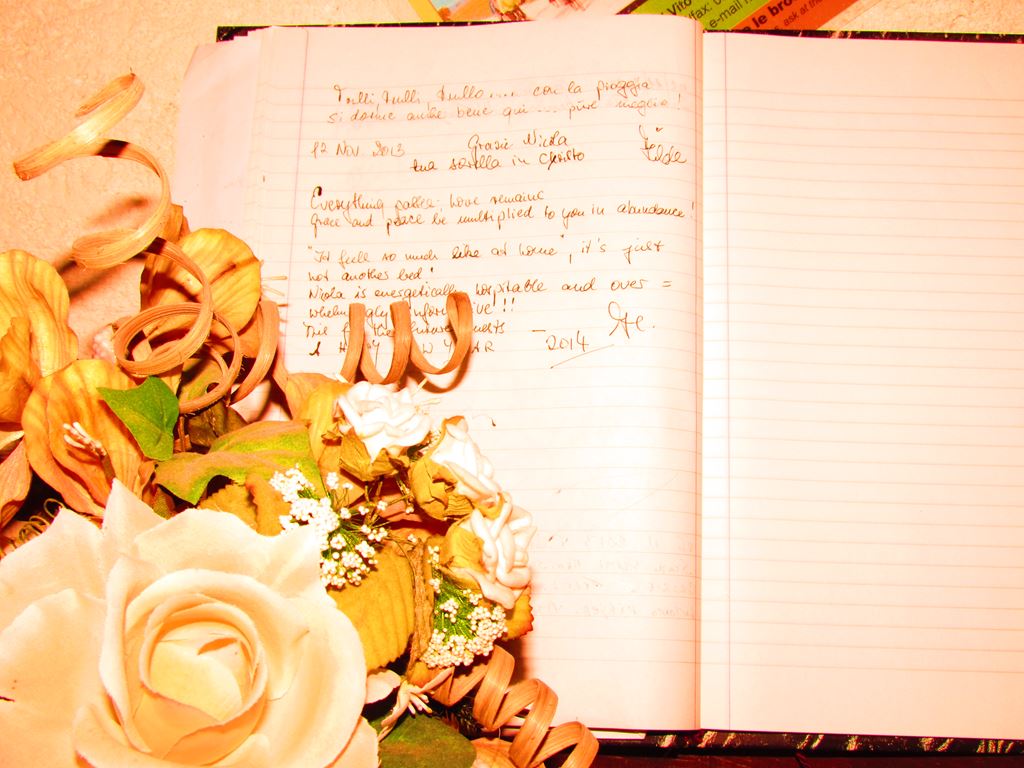 Vito
fax: 0
e-mail
le bro
ask at the
Trulli, trulli, trullo..... con la pioggia
si dorme anche bene qui ... pure meglio!
12 Nov. 2013 Grazie Nicola
tua sorella in Christo
Everything passes. Love remains
Grace and peace be multiplied to you in abundance!
so much like at home", it's just
not another bed!
Nicla is energetically hospitable and over =
2014